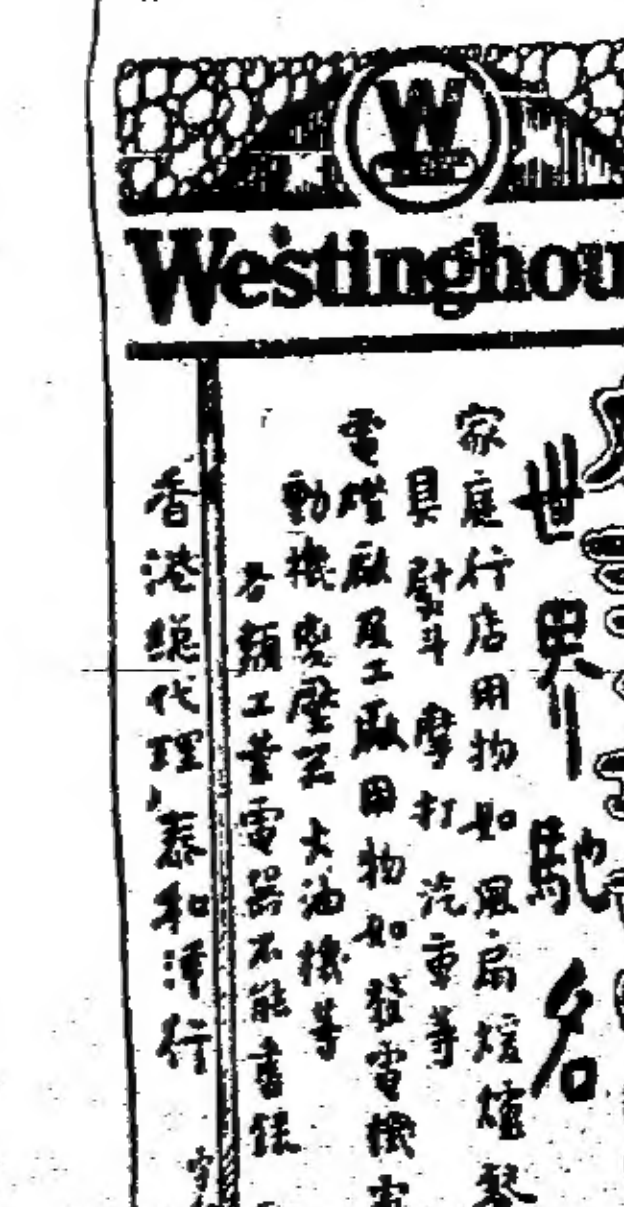 W
Westinghou
世界馳名
家庭行店用物如風扇煖爐
具熨斗 摩打 汽車等
電燈廠及工廠用物如發電機電
動機變壓器 大油機等
各類工業電器不能書錄
香港總代理 泰和洋行